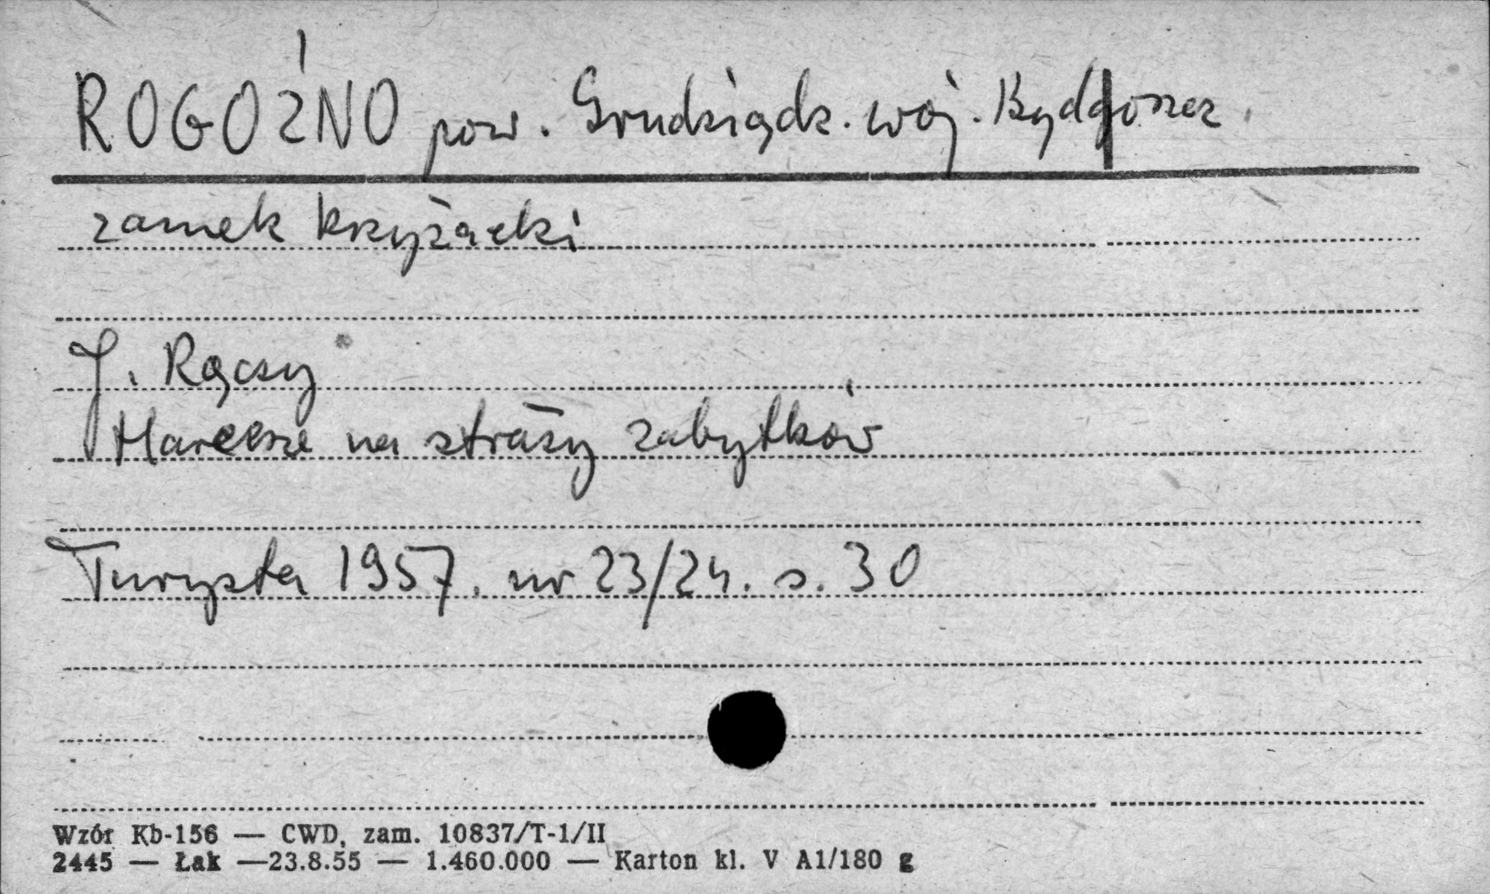 ROGOŹNO pow. Grudziądz. woj. Bydgoszcz
zamek krzyżacki
J. Rączy
Harcerze na straży zabytków
Turysta 1957. nr 23/24. s. 30
Wzór Kb-156 — CWD, zam. 10837/T-1/II
2445 — Łak —23.8.55 — 1.460.000 — Karton kl. V A1/180 g